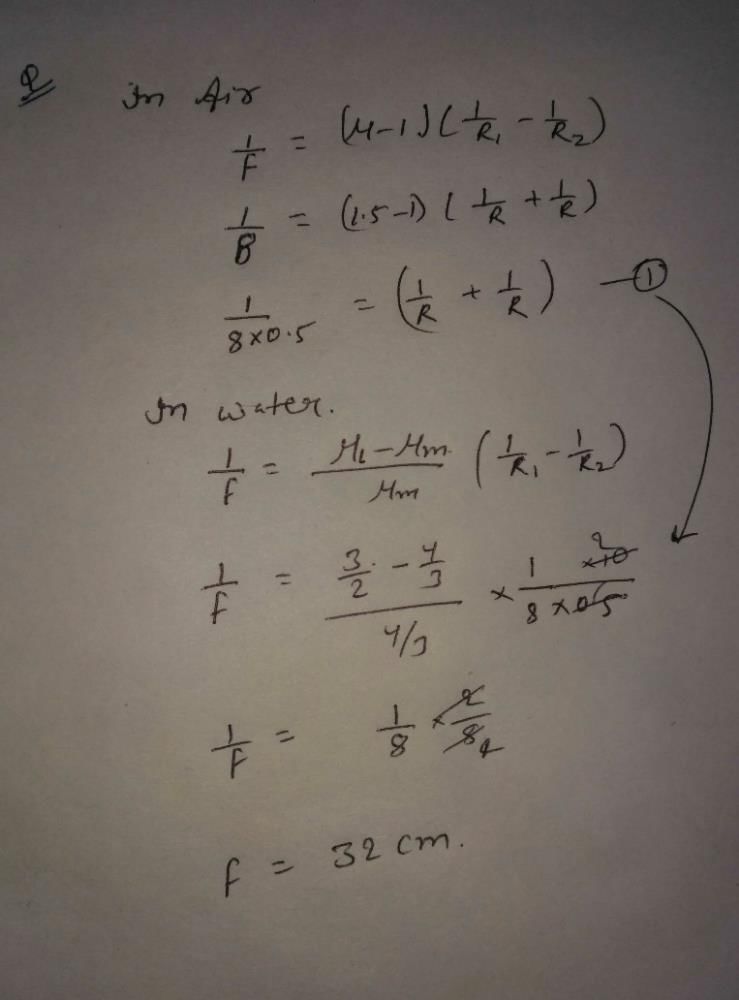 Q
In Air
1/F = (μ-1)(1/R1 - 1/R2)
1/8 = (1.5-1)(1/R + 1/R)
1/8×0.5 = (1/R + 1/R) —①
In water.
1/f = μL-μm/μm (1/R1 - 1/R2)
1/f = 3/2 - 4/3 / 4/3 × 1 ×10 2 / 8×05
1/F = 1/8 × 2/8 4
f = 32 cm.